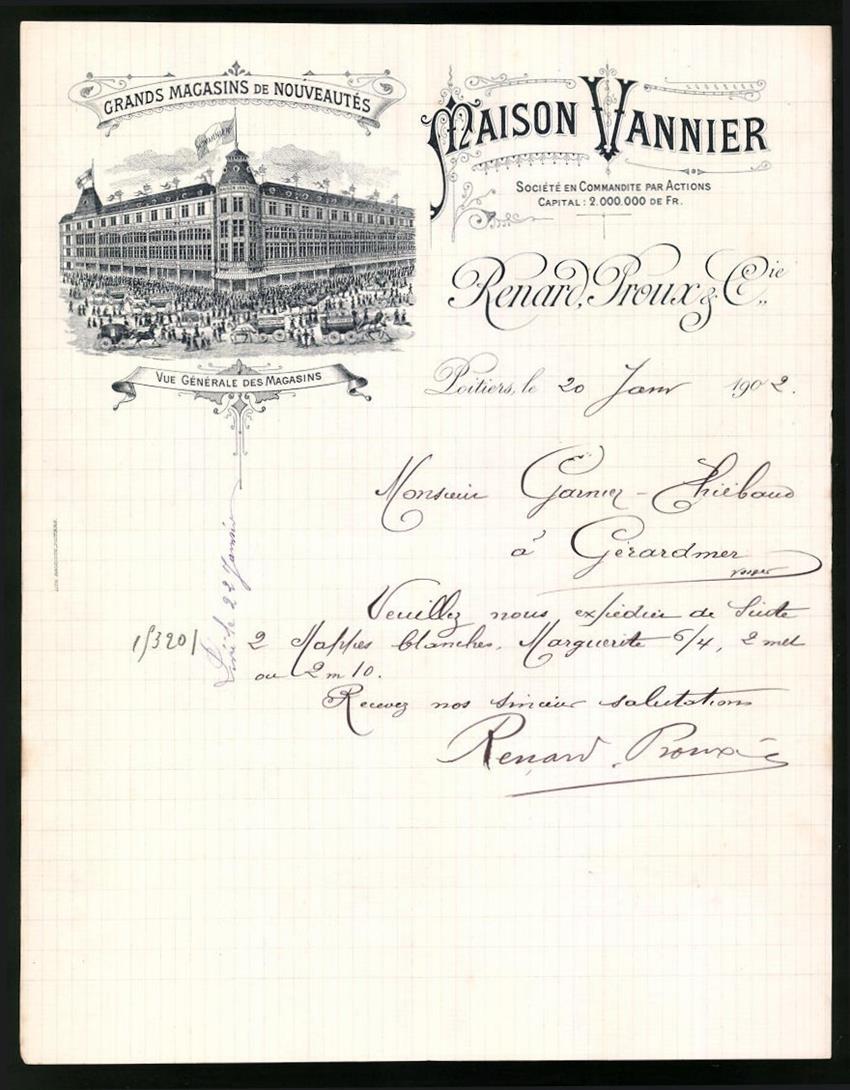 GRANDS MAGASINS DE NOUVEAUTÉS
MAISON VANNIER
SOCIÉTÉ EN COMMANDITE PAR ACTIONS
CAPITAL : 2.000.000 DE FR.
Renard, Proux & Cie
VUE GÉNÉRALE DES MAGASINS
Poitiers, le 20 Janv 1902.
Monsieur Garnier-Thiébaud
à Gérardmer
Vosges
Veuillez nous expédier de suite
15320/ 2 Nappes blanches, Marguerite 6/4, 2 met
ou 2 m 10.
Recevez nos sincères salutations
Renard, Proux & C
le 22 Janvier